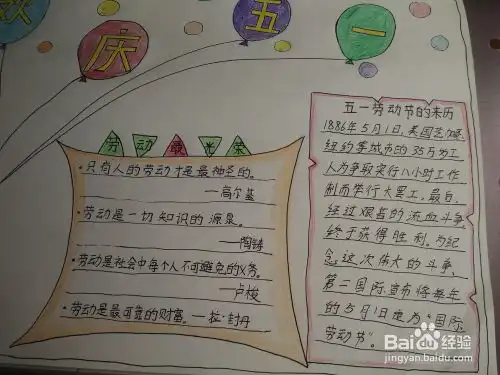 欢庆五一
劳动最光荣
·只有人的劳动才是最神圣的。
—高尔基
·劳动是一切知识的源泉。
—陶铸
·劳动是社会中每个人不可避免的义务。
—卢梭
·劳动是最可靠的财富。—拉·封丹
五一劳动节的来历
1886年5月1日,美国芝加哥,
纽约等城市的35万为工
人为争取实行八小时工作
制而举行大罢工,最后,
经过艰苦的流血斗争,
终于获得胜利。为纪
念这次伟大的斗争,
第二国际宣布将每年
的5月1日定为“国际
劳动节”。
Baidu经验
jingyan.baidu.com